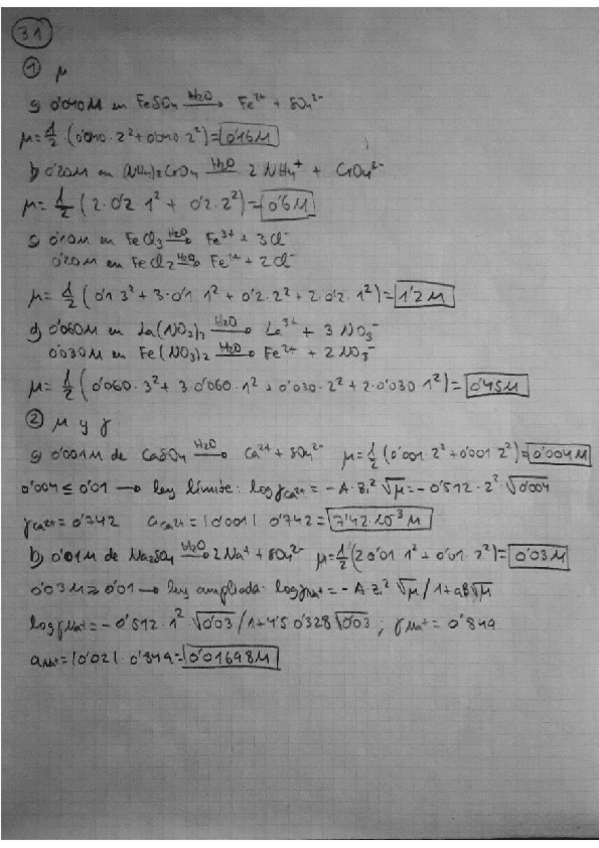 3.1
① μ
a) 0'040M en FeSO₄ —H₂O→ Fe²⁺ + SO₄²⁻
μ = 1/2 · (0'040 · 2² + 0'040 · 2²) = 0'16M
b) 0'20M en (NH₄)₂CrO₄ —H₂O→ 2 NH₄⁺ + CrO₄²⁻
μ = 1/2 (2 · 0'2 · 1² + 0'2 · 2²) = 0'6M
c) 0'10M en FeCl₃ —H₂O→ Fe³⁺ + 3Cl⁻
0'20M en FeCl₂ —H₂O→ Fe²⁺ + 2Cl⁻
μ = 1/2 (0'1 · 3² + 3 · 0'1 · 1² + 0'2 · 2² + 2 · 0'2 · 1²) = 1'2M
d) 0'060M en La(NO₃)₃ —H₂O→ La³⁺ + 3 NO₃⁻
0'030M en Fe(NO₃)₂ —H₂O→ Fe²⁺ + 2 NO₃⁻
μ = 1/2 (0'060 · 3² + 3 · 0'060 · 1² + 0'030 · 2² + 2 · 0'030 · 1²) = 0'45M
② μ y γ
a) 0'001M de CaSO₄ —H₂O→ Ca²⁺ + SO₄²⁻ μ = 1/2 (0'001 · 2² + 0'001 · 2²) = 0'004M
0'004 ≤ 0'01 → ley límite: log γCa²⁺ = -A · Zi² √μ = -0'512 · 2² · √0'004
γCa²⁺ = 0'742 aCa²⁺ = |0'001| · 0'742 = 7'42 · 10⁻³M
b) 0'01M de Na₂SO₄ —H₂O→ 2Na⁺ + SO₄²⁻ μ = 1/2 (2 · 0'01 · 1² + 0'01 · 2²) = 0'03M
0'03M ≥ 0'01 → ley ampliada: log γNa⁺ = -A · Zi² √μ / 1 + aB√μ
log γNa⁺ = -0'512 · 1² · √0'03 / 1 + 4'5 · 0'328 √0'03 ; γNa⁺ = 0'849
aNa⁺ = |0'02| · 0'849 = 0'01698M